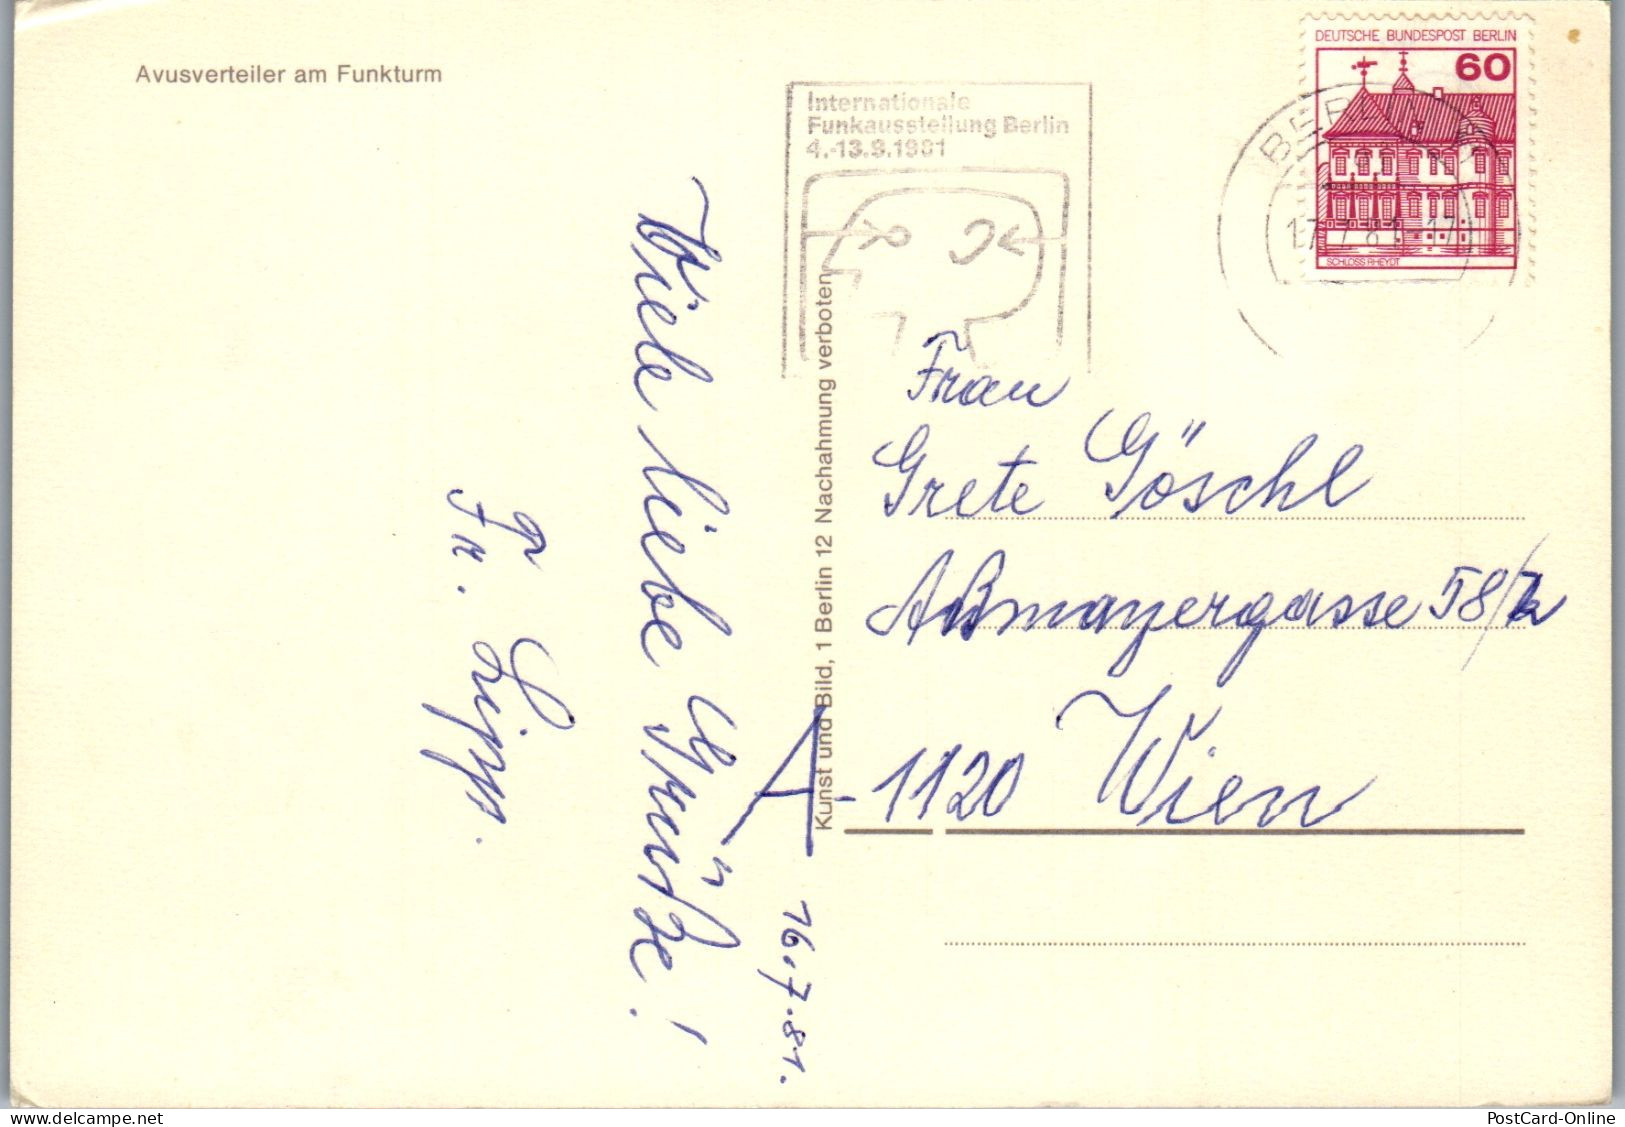 Avusverteiler am Funkturm
Internationale
Funkausstellung Berlin
4.-13.9.1981
DEUTSCHE BUNDESPOST BERLIN
60
SCHLOSS RHEYDT
BERLIN
17.7.81-17
Kunst und Bild, 1 Berlin 12 Nachahmung verboten
16.7.81.
Viele liebe Grüße!
Fr. Lipp.
Frau
Grete Göschl
Aßmayergasse 58/
A-1120 Wien
the-before-land
PostCard-Online